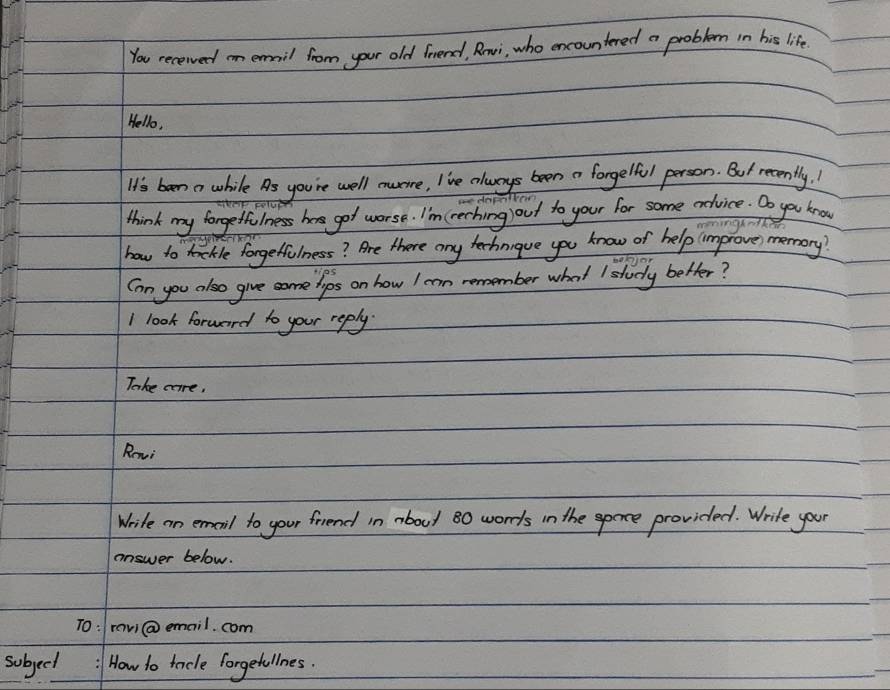 You received an email from your old friend, Ravi, who encountered a problem in his life.
Hello,
It's been a while As you're well aware, I've always been a forgelful person. But recently, I
sikap pelupa
mendapatkan
think my forgetfulness has got worse. I'm (reching) out to your for some advice. Do you know
menyelesaikan
meningkatkan
how to tackle forgetfulness? Are there any technique you know of help (improve) memory?
tips
belajar
Can you also give some tips on how I can remember what I study better?
I look forward to your reply.
Take care,
Ravi
Write an email to your friend in about 80 words in the space provided. Write your
answer below.
TO : ravi@email.com
Subject : How to tacle forgetullnes.